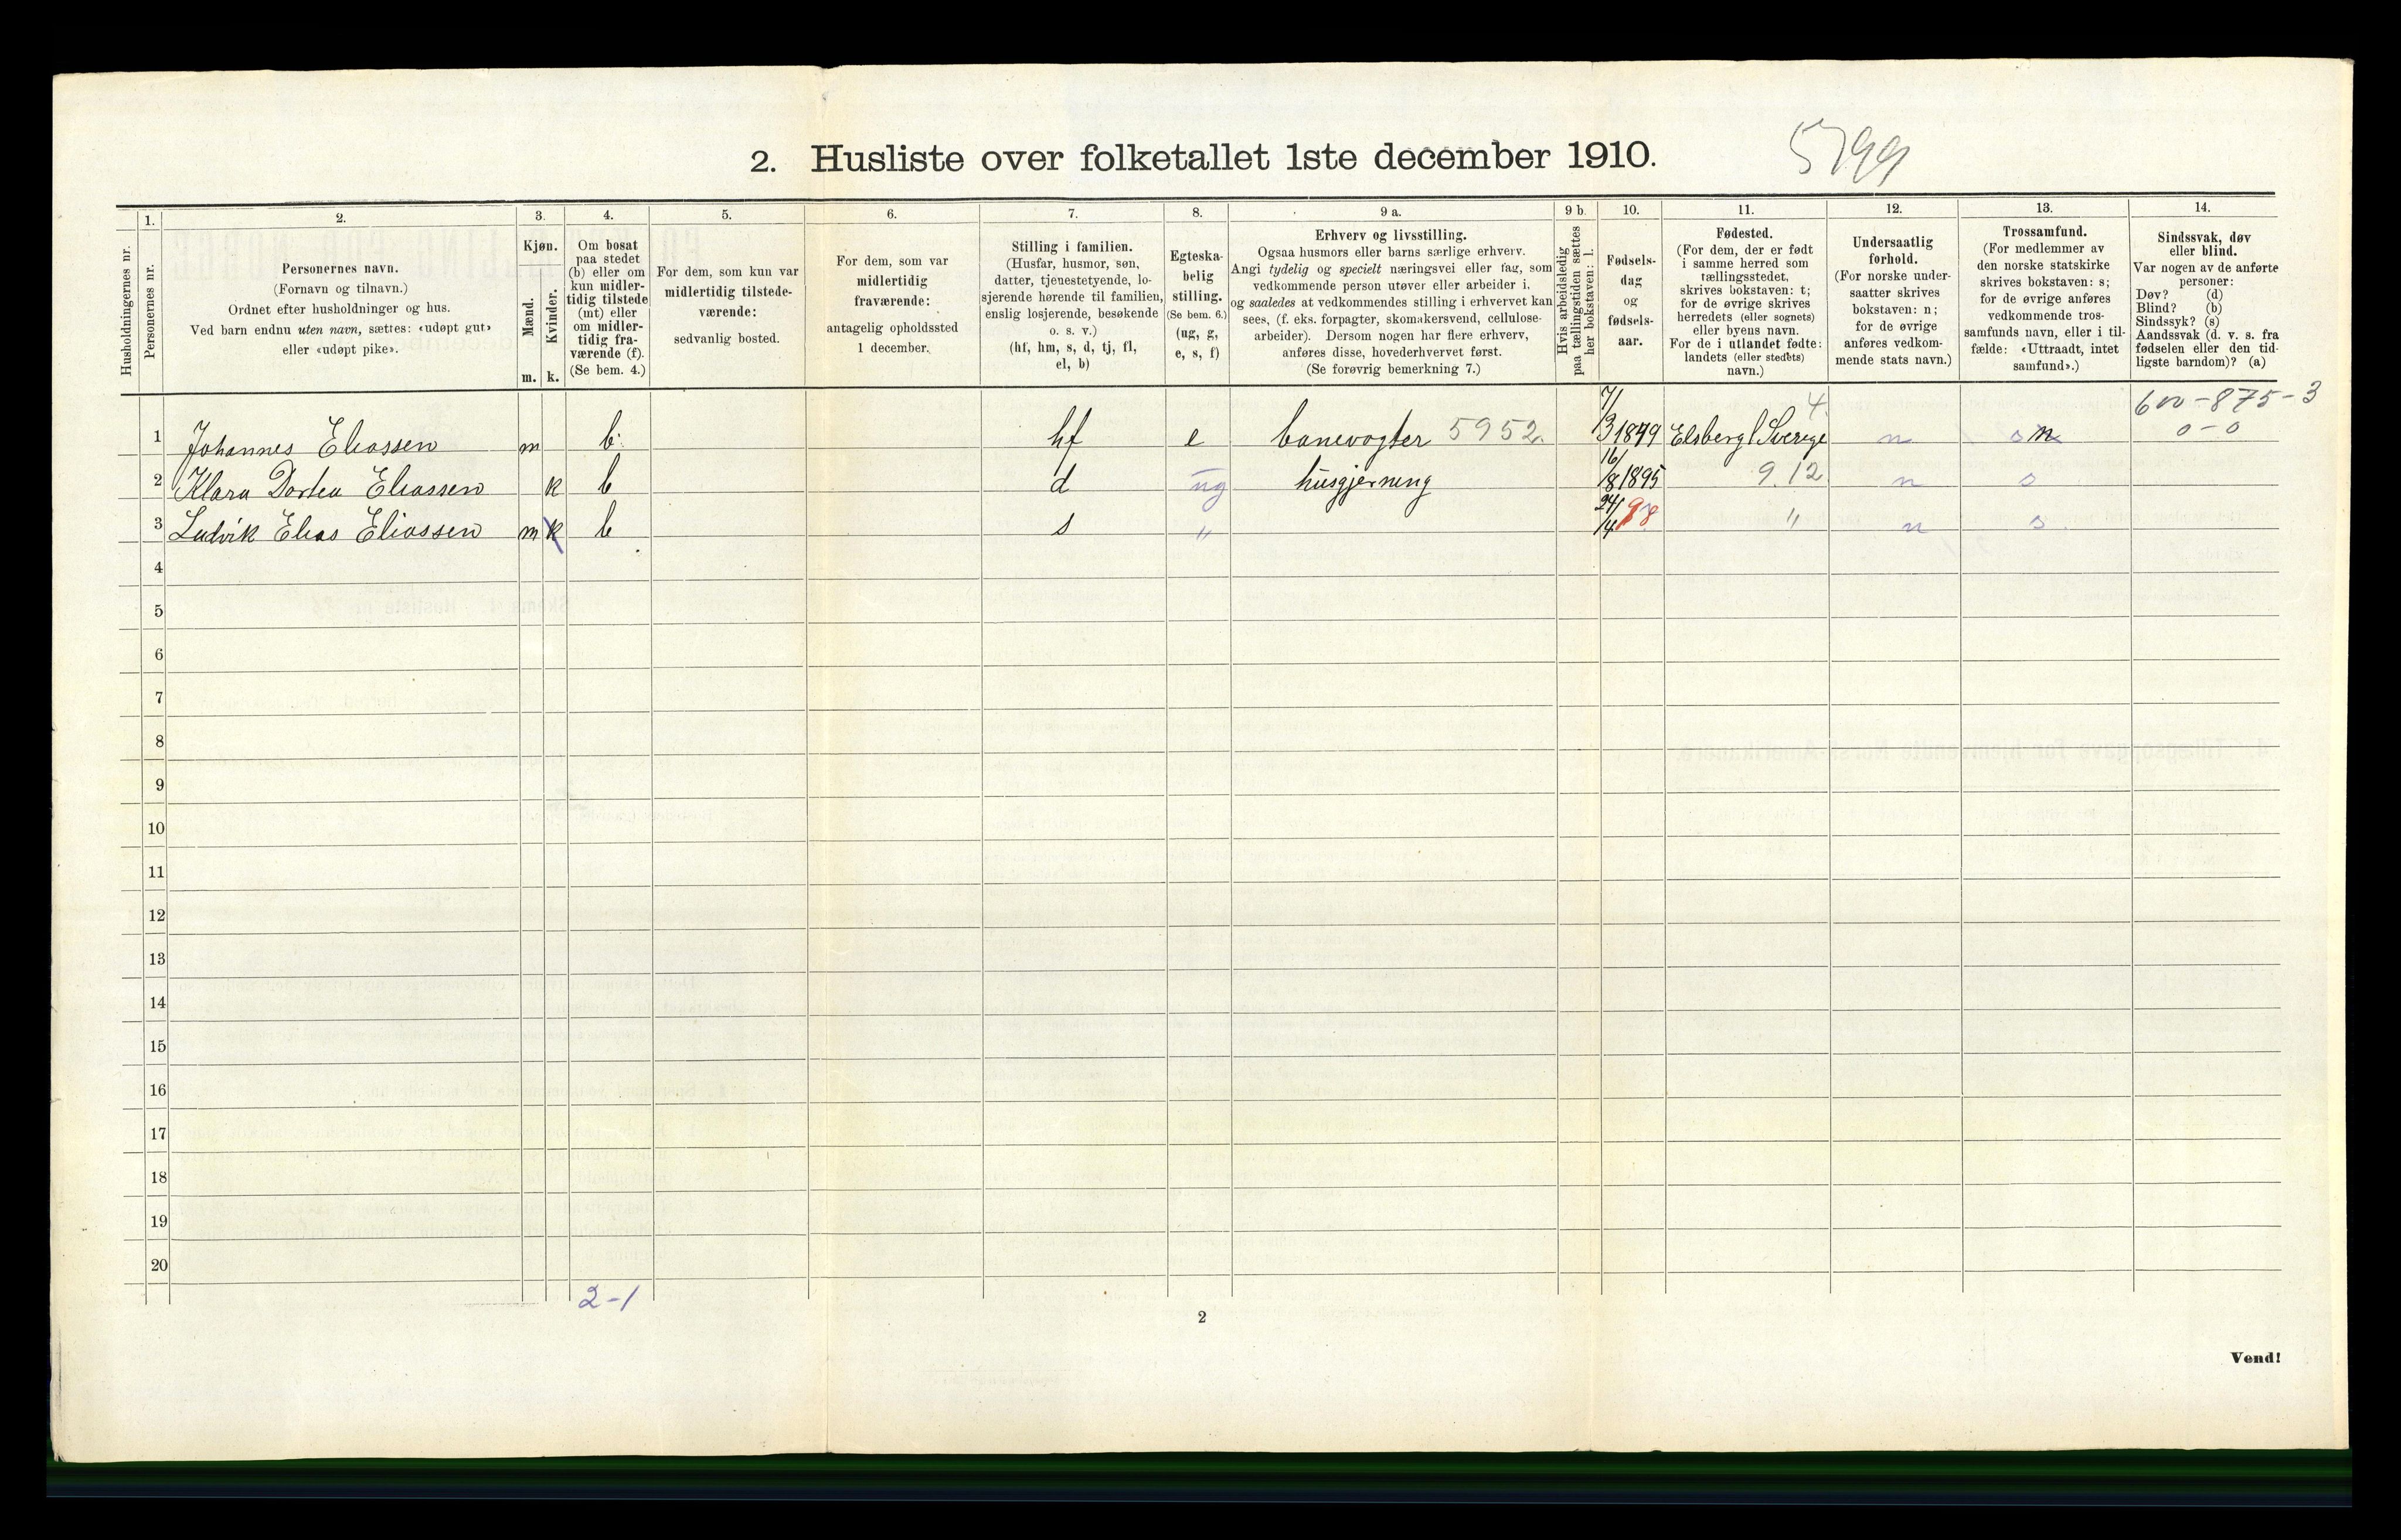 2. Husliste over folketallet 1ste december 1910.
5799
Husholdningernes nr.
1.
Personernes nr.
2.
Personernes navn.
(Fornavn og tilnavn.)
Ordnet efter husholdninger og hus.
Ved barn endnu uten navn, sættes: «udøpt gut»
eller «udøpt pike».
3.
Kjøn.
Mænd.
Kvinder.
m. k.
4.
Om bosat
paa stedet
(b) eller om
kun midler-
tidig tilstede
(mt) eller
om midler-
tidig fra-
værende (f).
(Se bem. 4.)
5.
For dem, som kun var
midlertidig tilstede-
værende:
sedvanlig bosted.
6.
For dem, som var
midlertidig
fraværende:
antagelig opholdssted
1 december.
7.
Stilling i familien.
(Husfar, husmor, søn,
datter, tjenestetyende, lo-
sjerende hørende til familien,
enslig losjerende, besøkende
o. s. v.)
(hf, hm, s, d, tj, fl,
el, b)
8.
Egteska-
belig
stilling.
(Se bem. 6.)
(ug, g,
e, s, f)
9 a.
Erhverv og livsstilling.
Ogsaa husmors eller barns særlige erhverv.
Angi tydelig og specielt næringsvei eller fag, som
vedkommende person utøver eller arbeider i,
og saaledes at vedkommendes stilling i erhvervet kan
sees, (f. eks. forpagter, skomakersvend, cellulose-
arbeider). Dersom nogen har flere erhverv,
anføres disse, hovederhvervet først.
(Se forøvrig bemerkning 7.)
9 b.
Hvis arbeidsledig
paa tællingstiden sættes
her bokstaven: l.
10.
Fødsels-
dag
og
fødsels-
aar.
11.
Fødested.
(For dem, der er født
i samme herred som
tællingsstedet,
skrives bokstaven: t;
for de øvrige skrives
herredets (eller sognets)
eller byens navn.
For de i utlandet fødte:
landets (eller stedets)
navn.)
12.
Undersaatlig
forhold.
(For norske under-
saatter skrives
bokstaven: n;
for de øvrige
anføres vedkom-
mende stats navn.)
13.
Trossamfund.
(For medlemmer av
den norske statskirke
skrives bokstaven: s;
for de øvrige anføres
vedkommende tros-
samfunds navn, eller i til-
fælde: «Uttraadt, intet
samfund».)
14.
Sindssvak, døv
eller blind.
Var nogen av de anførte
personer:
Døv? (d)
Blind? (b)
Sindssyk? (s)
Aandssvak (d. v. s. fra
fødselen eller den tid-
ligste barndom)? (a)
4. 600-875-3
1 Johannes Eliassen m b. hf e banevogter 5952. 7/3 1849 Elsberg / Sverige n s n 0-0
2 Klara Dortea Eliassen k b d ug husgjerning 16/8 1895 9.12 n s
3 Ludvik Elias Eliassen m k b s " 24/4 98 " n s.
4
5
6
7
8
9
10
11
12
13
14
15
16
17
18
19
20
2-1
2
Vend!